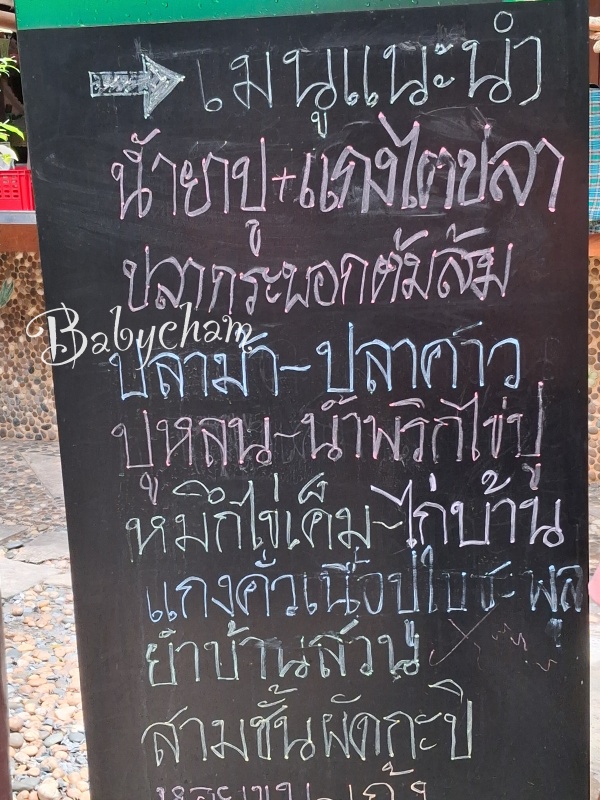 เมนูแนะนำ
น้ำยาปู+แกงไตปลา
ปลากระพอกต้มส้ม
Babycham
ปลาม้า-ปลาค้าว
ปูหลน-น้ำพริกไข่ปู
หมึกไข่เค็ม-ไก่บ้าน
แกงคั่วเนื้อปูใบชะพลู
ยำบ้านสวน
สามชั้นผัดกะปิ